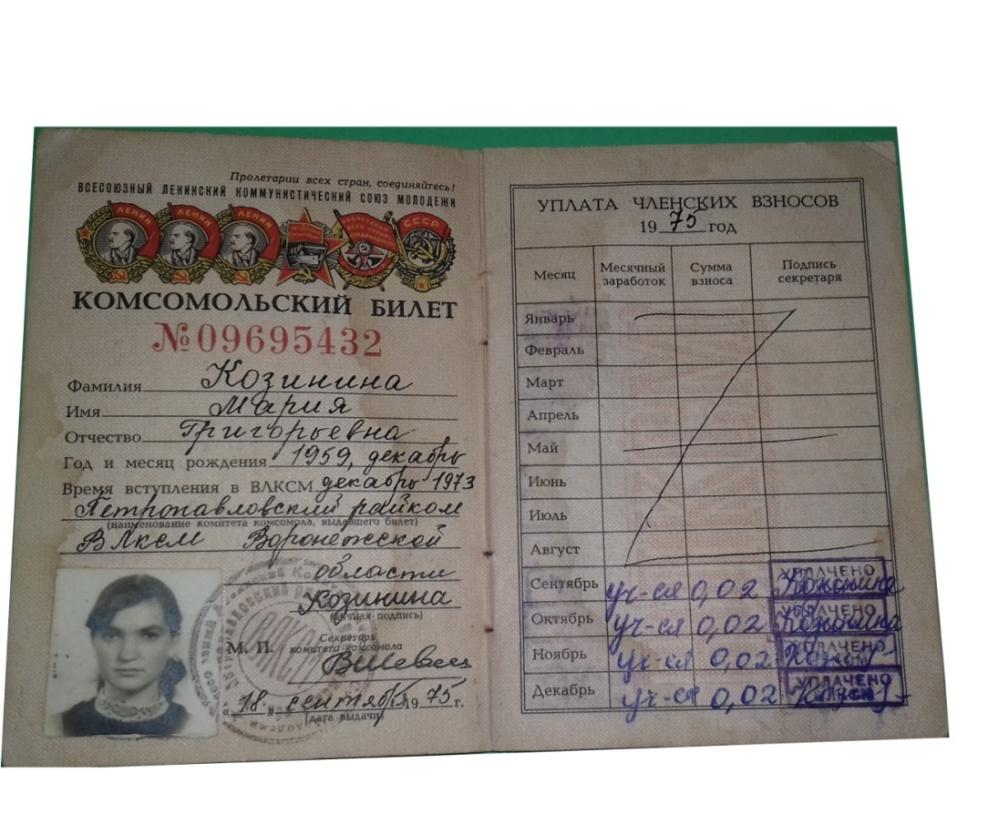 Пролетарии всех стран, соединяйтесь!
ВСЕСОЮЗНЫЙ ЛЕНИНСКИЙ КОММУНИСТИЧЕСКИЙ СОЮЗ МОЛОДЕЖИ
ЛЕНИН ЛЕНИН ЛЕНИН СССР
КОМСОМОЛЬСКИЙ БИЛЕТ
№09695432
Фамилия Козинина
Имя Мария
Отчество Григорьевна
Год и месяц рождения 1959, декабрь
Время вступления в ВЛКСМ декабрь 1973
Петропавловский райком
(наименование комитета комсомола, выдавшего билет)
ВЛКСМ Воронежской
области
Козинина
(личная подпись)
М. П. Секретарь
комитета комсомола
"18" сентября 1975 г.
(дата выдачи)
УПЛАТА ЧЛЕНСКИХ ВЗНОСОВ
1975 год
Месяц Месячный заработок Сумма взноса Подпись секретаря
Январь
Февраль
Март
Апрель
Май
Июнь
Июль
Август
Сентябрь уч-ся 0,02 УПЛАЧЕНО
Октябрь уч-ся 0,02 УПЛАЧЕНО
Ноябрь уч-ся 0,02 УПЛАЧЕНО
Декабрь уч-ся 0,02 УПЛАЧЕНО